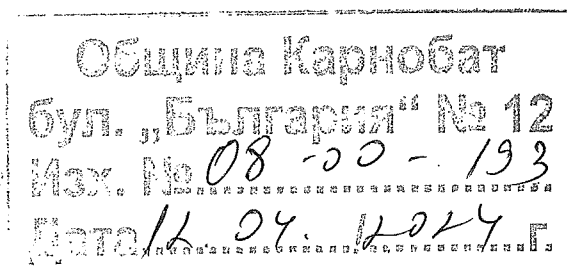 Община Карнобат
бул. „България“ № 12
Изх. № 08-00-193
Дата 12.04.2024 г.